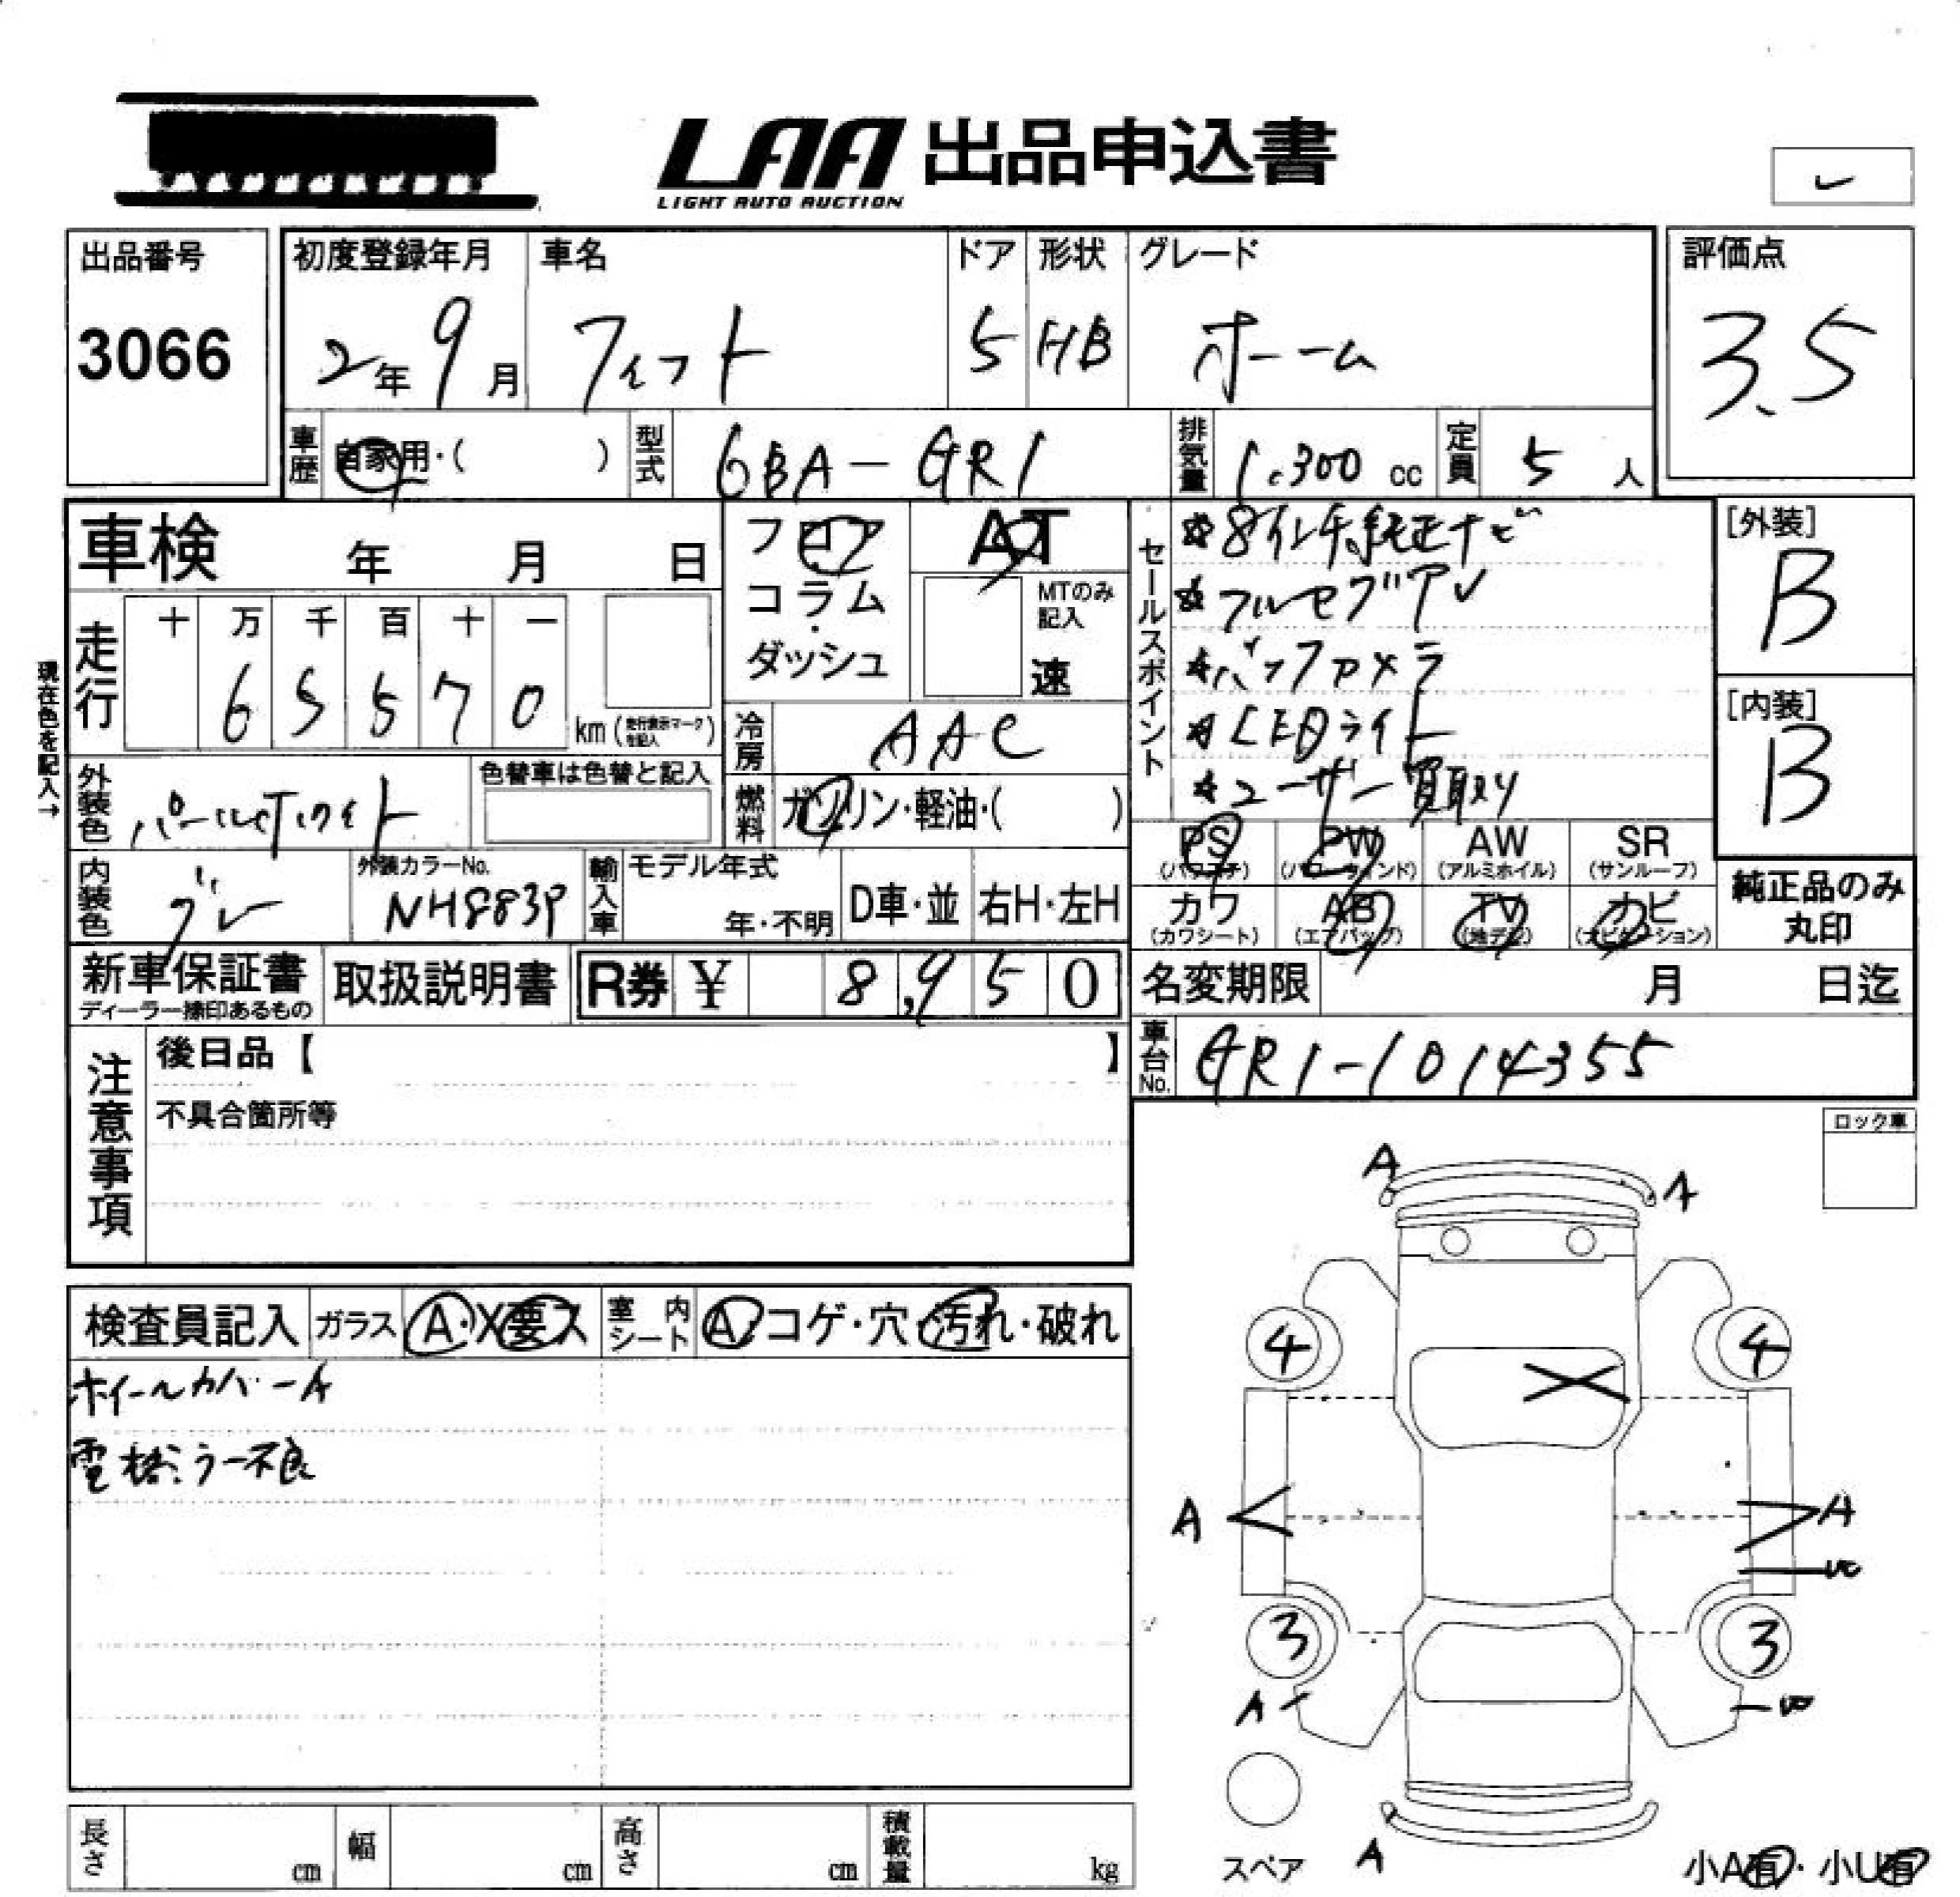 LAA 出品申込書
LIGHT AUTO AUCTION
出品番号
3066
初度登録年月
2年9月
車名
フィット
ドア
5
形状
HB
グレード
ホーム
評価点
3.5
車歴
自家用・( )
型式
6BA-GR1
排気量
1.300 cc
定員
5 人
車検 年 月 日
走行
十 万 千 百 十 一
6 5 5 7 0
km (走行表示マークを記入)
現在色を記入→
フロア
コラム
・
ダッシュ
AT
MTのみ記入
速
冷房
AAC
燃料
ガソリン・軽油・( )
セールスポイント
☆8インチ純正ナビ
☆フルセグTV
☆バックカメラ
☆LEDライト
☆ユーザー買取り
[外装]
B
[内装]
B
外装色
パールホワイト
色替車は色替と記入
内装色
グレー
外装カラーNo.
NH883P
輸入車
モデル年式
年・不明
D車・並
右H・左H
PS
(パワステ)
PW
(パワーウインド)
AW
(アルミホイル)
SR
(サンルーフ)
カワ
(カワシート)
AB
(エアバッグ)
TV
(地デジ)
ナビ
(ナビゲーション)
純正品のみ
丸印
新車保証書
ディーラー捺印あるもの
取扱説明書
R券 ¥ 8,950
名変期限 月 日迄
車台No.
GR1-1014355
注意事項
後日品【 】
不具合箇所等
ロック車
検査員記入
ガラス
A・X要ス
室内シート
A・コゲ・穴・汚れ・破れ
ホイールカバーA
電格ミラー不良
A
A
4
4
X
A
A
W
3
3
A
W
スペア
A
小A有・小U有
長さ cm
幅 cm
高さ cm
積載量 kg